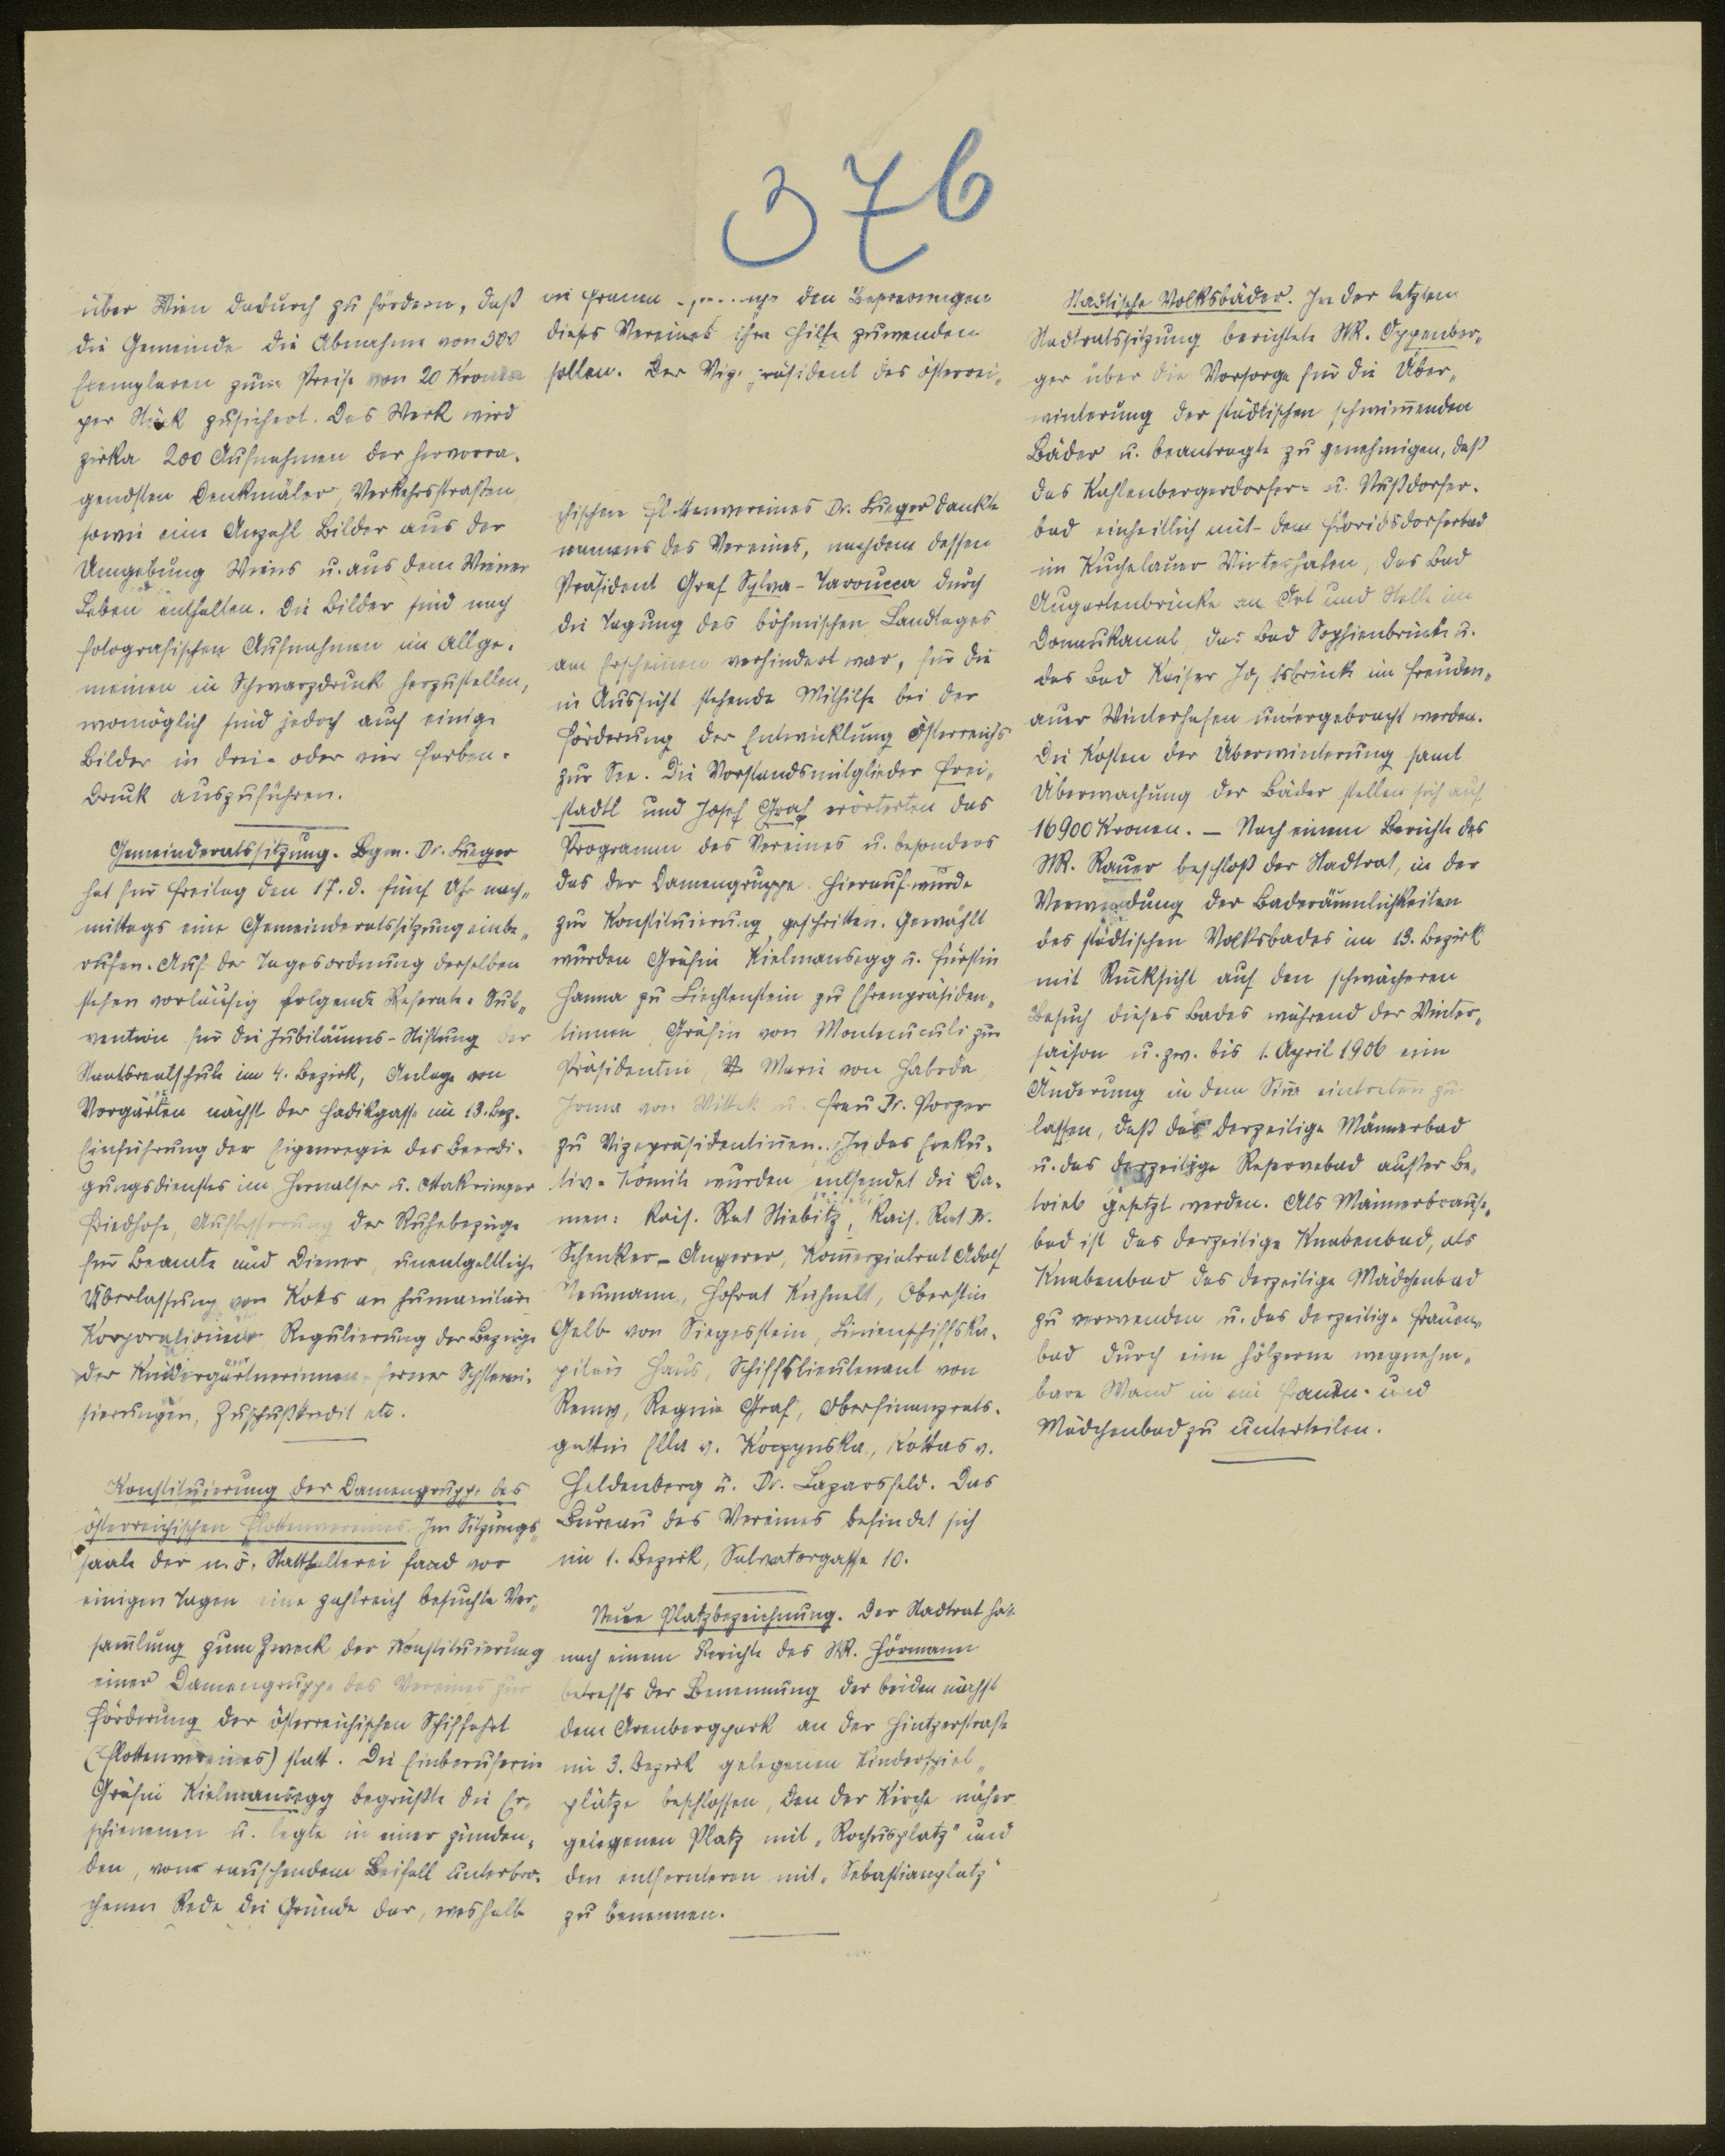 376
über Wien dadurch zu fördern, daß
die Gemeinde die Abnahme von 300
Exemplaren zum Preise von 20 Kronen
per Stück zusichert. Das Werk wird
zirka 200 Aufnahmen der hervorra-
gendsten Denkmäler, Verkehrsstraßen
sowie eine Anzahl Bilder aus der
Umgebung Wiens u. aus dem Wiener
Leben enthalten. Die Bilder sind nach
fotografischen Aufnahmen im allge-
meinen in Schwarzdruck herzustellen,
womöglich sind jedoch auch einige
Bilder in drei- oder vier Farben-
Druck auszuführen.
Gemeinderatssitzung. Bgm. Dr. Lueger
hat für Freitag den 17. d. fünf Uhr nach-
mittags eine Gemeinderatssitzung einbe-
rufen. Auf der Tagesordnung derselben
stehen vorläufig folgende Referate: Sub-
vention für die Jubiläums-Stiftung der
Staatsrealschule im 4. Bezirk, Anlage von
Vorgärten nächst der Hadikgasse im 13. Bez.
Einführung der Eigenregie des Beerdi-
gungsdienstes im Hernalser u. Ottakringer
Friedhofe, Aufbesserung der Ruhebezüge
für Beamte und Diener, unentgeltliche
Überlassung von Koks an humanitäre
Korporationen Regulierung der Bezüge
der Kindergärtnerinnen ferner Systemi-
sierungen, Zuschußkredit etc.
Konstituierung der Damengruppe des
österreichischen Flottenvereines. Im Sitzungs-
saale der n.ö. Statthalterei fand vor
einigen Tagen eine zahlreich besuchte Ver-
sammlung zum Zweck der Konstituierung
einer Damengruppe des Vereines zur
Förderung der österreichischen Schiffahrt
(Flottenvereines) statt. Die Einberuferin
Gräfin Kielmansegg begrüßte die Er-
schienenen u. legte in einer zünden-
den, von rauschendem Beifall unterbro-
chenen Rede die Gründe dar, weshalb
die Frauen den Bestrebungen
dieses Vereines ihre Hilfe zuwenden
sollen. Der Vizepräsident des österrei-
chischen Flottenvereines Dr. Lueger dankte
namens des Vereines, nachdem dessen
Präsident Graf Sylva-Taroucca durch
die Tagung des böhmischen Landtages
am Erscheinen verhindert war, für die
in Aussicht stehende Mithilfe bei der
Förderung der Entwicklung Österreichs
zur See. Die Vorstandsmitglieder Frei-
stadtl und Josef Graf erörterten das
Programm des Vereines u. besonders
das der Damengruppe. Hierauf wurde
zur Konstituierung geschritten. Gewählt
wurden Gräfin Kielmansegg u. Fürstin
Hanna zu Liechtenstein zu Ehrenpräsiden-
tinnen, Gräfin von Montecuculi zur
Präsidentin, Marie von Haboda
Joma von Wittek u. Frau Dr. Porzer
zu Vizepräsidentinnen. In das Exeku-
tiv-Komite wurden entsendet die Da-
men: Kais. Rat Stiebitz, Kais. Rat Dr.
Schenker-Angerer, Kommerzialrat Adolf
Neumann, Hofrat Kuhnelt, Oberstin
Gelb von Siegesstein, Linienschiffska-
pitän Haus, Schiffslieutenant von
Remy, Regine Graf, Oberfinanzrats-
gattin Ella v. Koczynska, Kottas v.
Heldenberg u. Dr. Lazarsfeld. Das
Bureau des Vereines befindet sich
im 1. Bezirk, Salvatorgasse 10.
Neue Platzbezeichnung. Der Stadtrat hat
nach einem Berichte des StR. Hörmann
betreffs der Benennung der beiden nächst
dem Arenbergpark an der Hintzerstraße
im 3. Bezirk gelegenen Kinderspiel-
plätze beschlossen, den der Kirche näher
gelegenen Platz mit „Rochusplatz" und
den entfernteren mit „Sebastianplatz"
zu benennen.
Städtische Volksbäder. In der letzten
Stadtratssitzung berichtete StR. Oppenber-
ger über die Vorsorge für die Über-
winterung der städtischen schwimmenden
Bäder u. beantragte zu genehmigen, daß
das Kahlenbergerdorfer- u. Nußdorfer-
bad einheitlich mit dem Floridsdorferbad
im Kuchelauer Winterhafen, das Bad
Augartenbrücke an Ort und Stelle im
Donaukanal, das Bad Sophienbrücke u.
das Bad Kaiser Josefsbrücke im Freuden-
auer Winterhafen untergebracht werden.
Die Kosten der Überwinterung samt
Überwachung der Bäder stellen sich auf
16900 Kronen. – Nach einem Berichte des
StR. Rauer beschloß der Stadtrat, in der
Verwendung der Baderäumlichkeiten
des städtischen Volksbades im 13. Bezirk
mit Rücksicht auf den schwächeren
Besuch dieses Bades während der Winter-
saison u. zw. bis 1. April 1906 eine
Änderung in dem Sinne eintreten zu
lassen, daß das derzeitige Männerbad
u. das derzeitige Reservebad außer Be-
trieb gesetzt werden. Als Männerbrause-
bad ist das derzeitige Knabenbad, als
Knabenbad das derzeitige Mädchenbad
zu verwenden u. das derzeitige Frauen-
bad durch eine hölzerne wegnehm-
bare Wand in ein Frauen- und
Mädchenbad zu unterteilen.